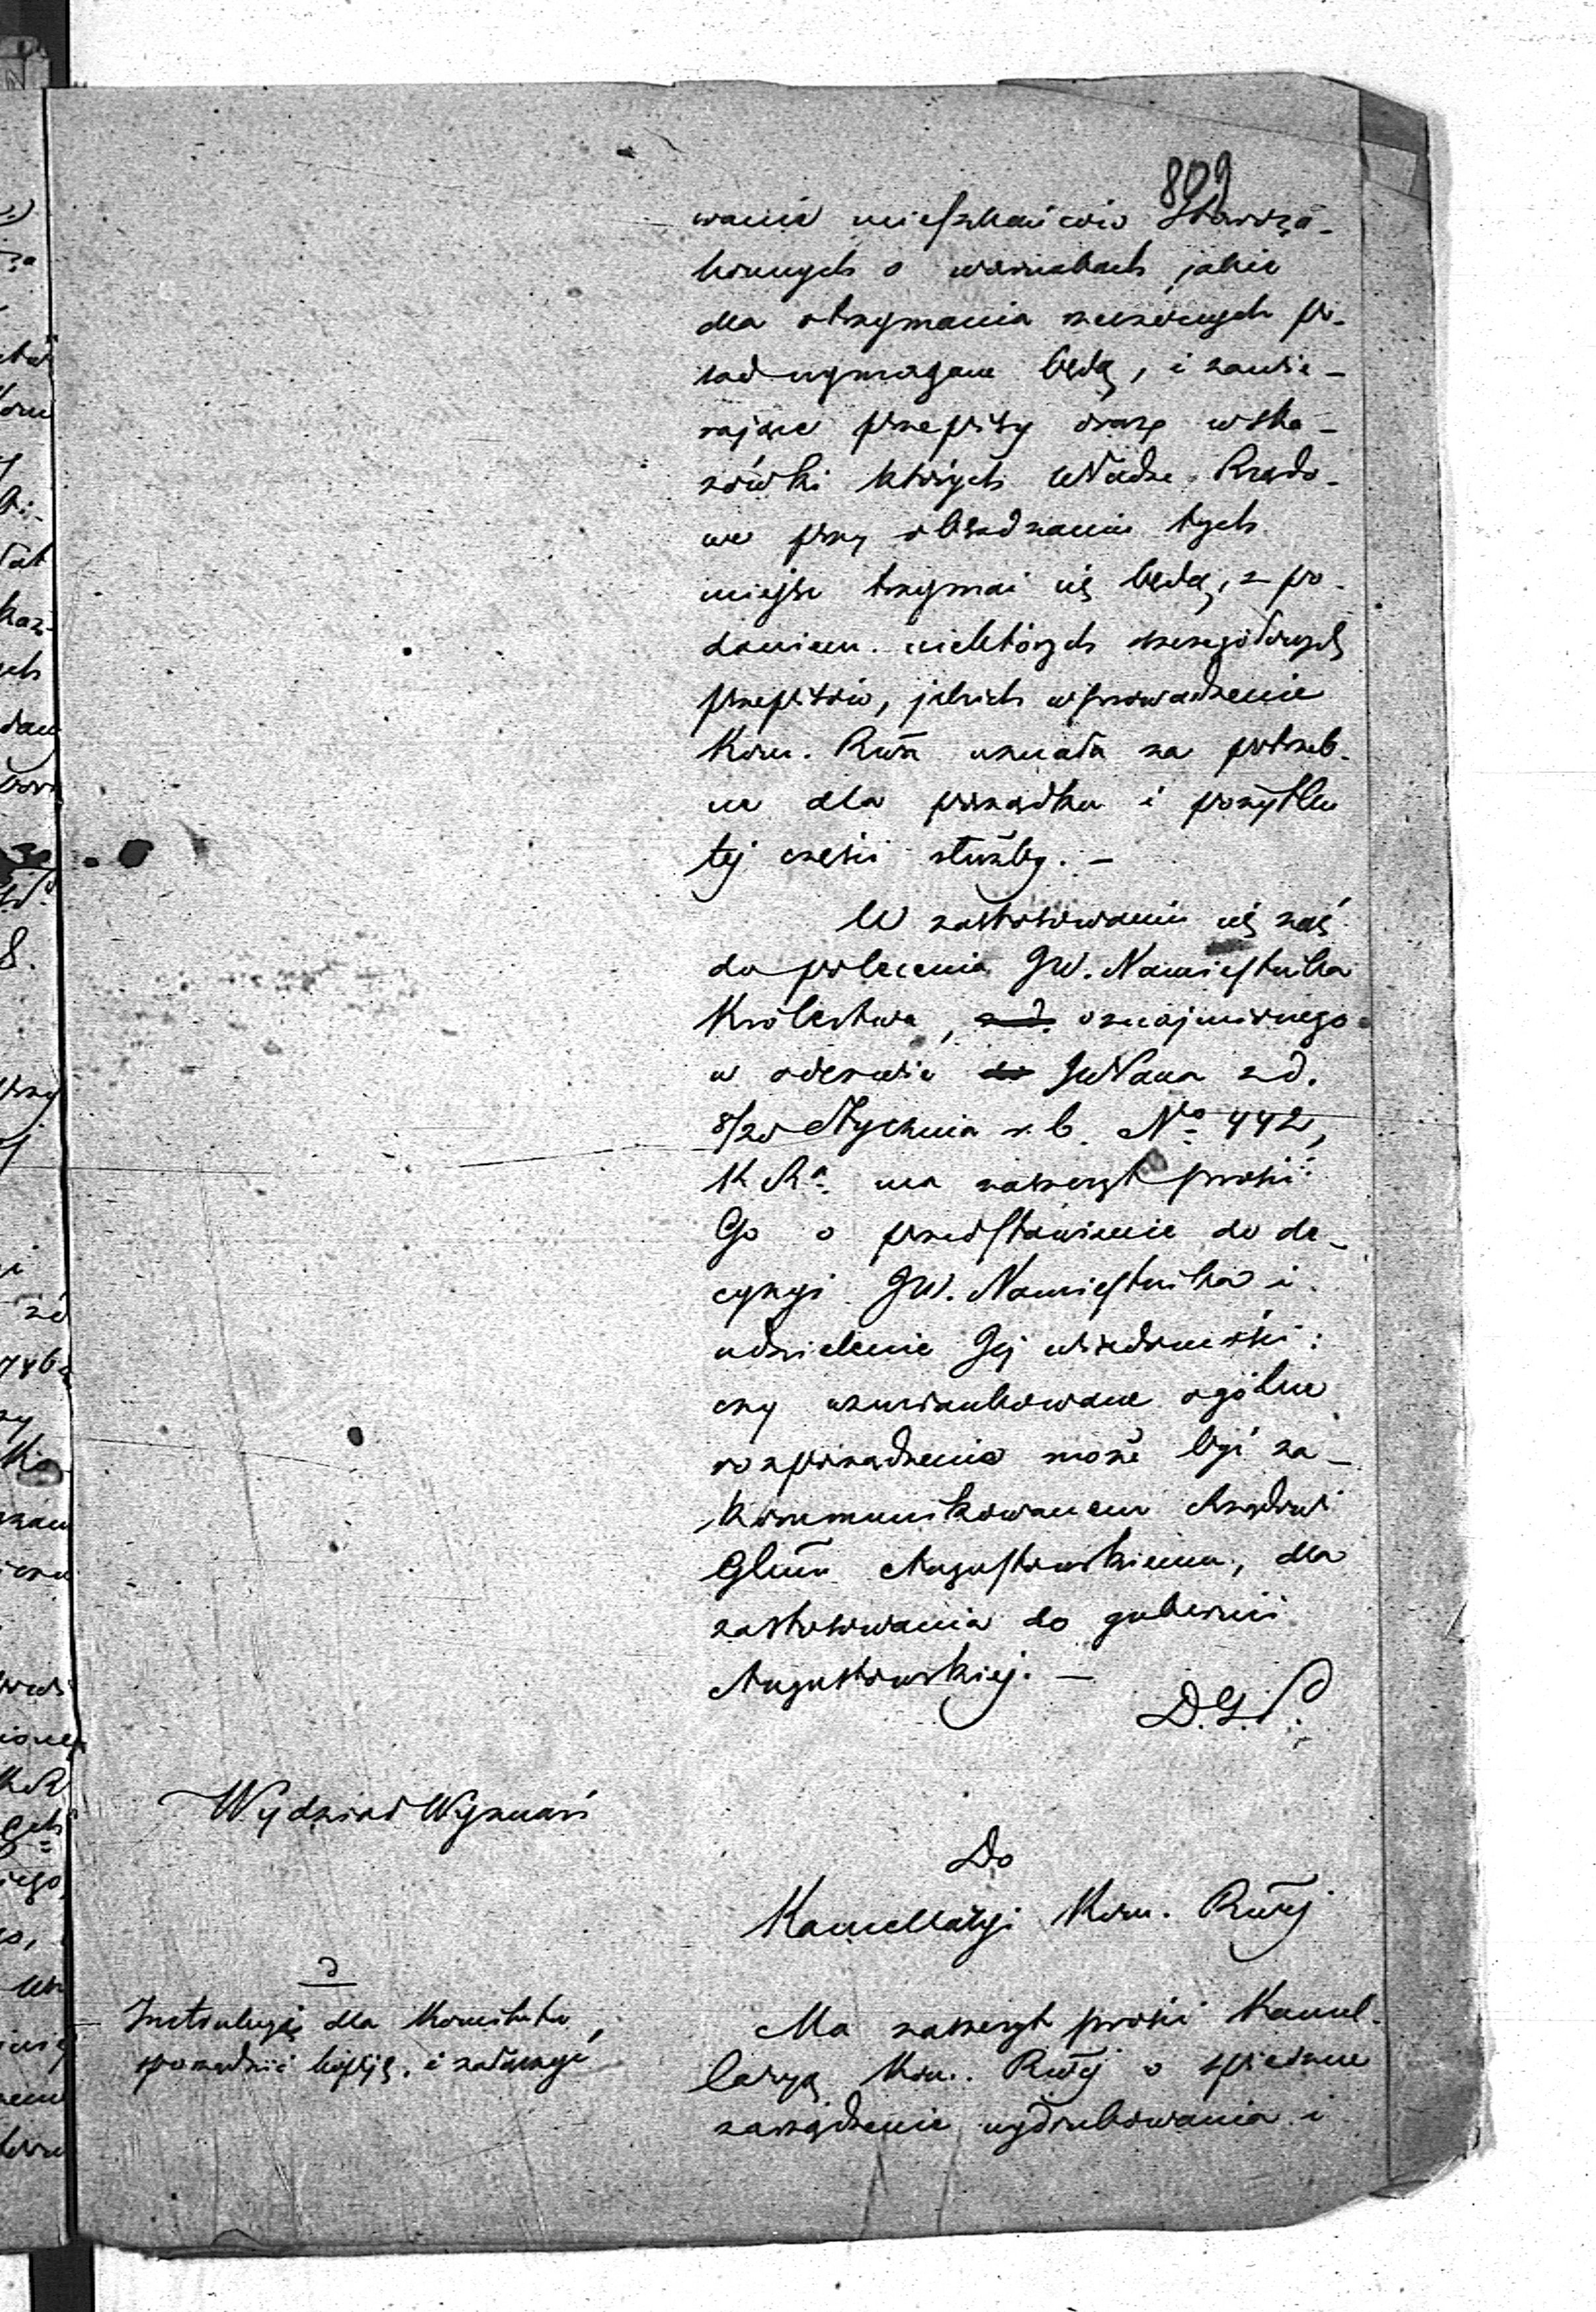 809
wania mieszkańców Staroza-
konnych o warunkach jakie
dla otrzymania rzeczonych po-
sad wymagane będą, i zawie-
rające przepisy oraz wska-
zówki których Władze Rządo-
we przy obsadzaniu tych
miejsc trzymać się będą, z po-
daniem niektórych szczegółowych
przepisów, jakich wprowadzenie
Kom. Rząa uznała za potrzeb-
ne dla porządku i pożytku
tej części służby. —
W zastosowaniu się zaś
do polecenia JW. Namiestnika
Królestwa, z d. oznajmionego
w odezwie JWPana z d.
8/20 Stycznia r. b. No 442,
K Ra. ma zaszczyt prosić
Go o przedstawienie do de-
cyzyi JW. Namiestnika i
udzielenie Jej wiadomości:
czy wzmiankowane ogólne
rozporządzenie może być za-
kommunikowanem Rządowi
Glnu Augustowskiemu, dla
zastosowania do gubernii
Augustowskiej. —
D. G. P.
Wydział Wyznań
Do
Kancellaryi Kom. Rząej
Instrukcyę dla Komitetu,
sporządzić kopiję, i załączyć
Ma zaszczyt prosić Kancel-
laryą Kom. Rząej o spieszne
zarządzenie wydrukowania i